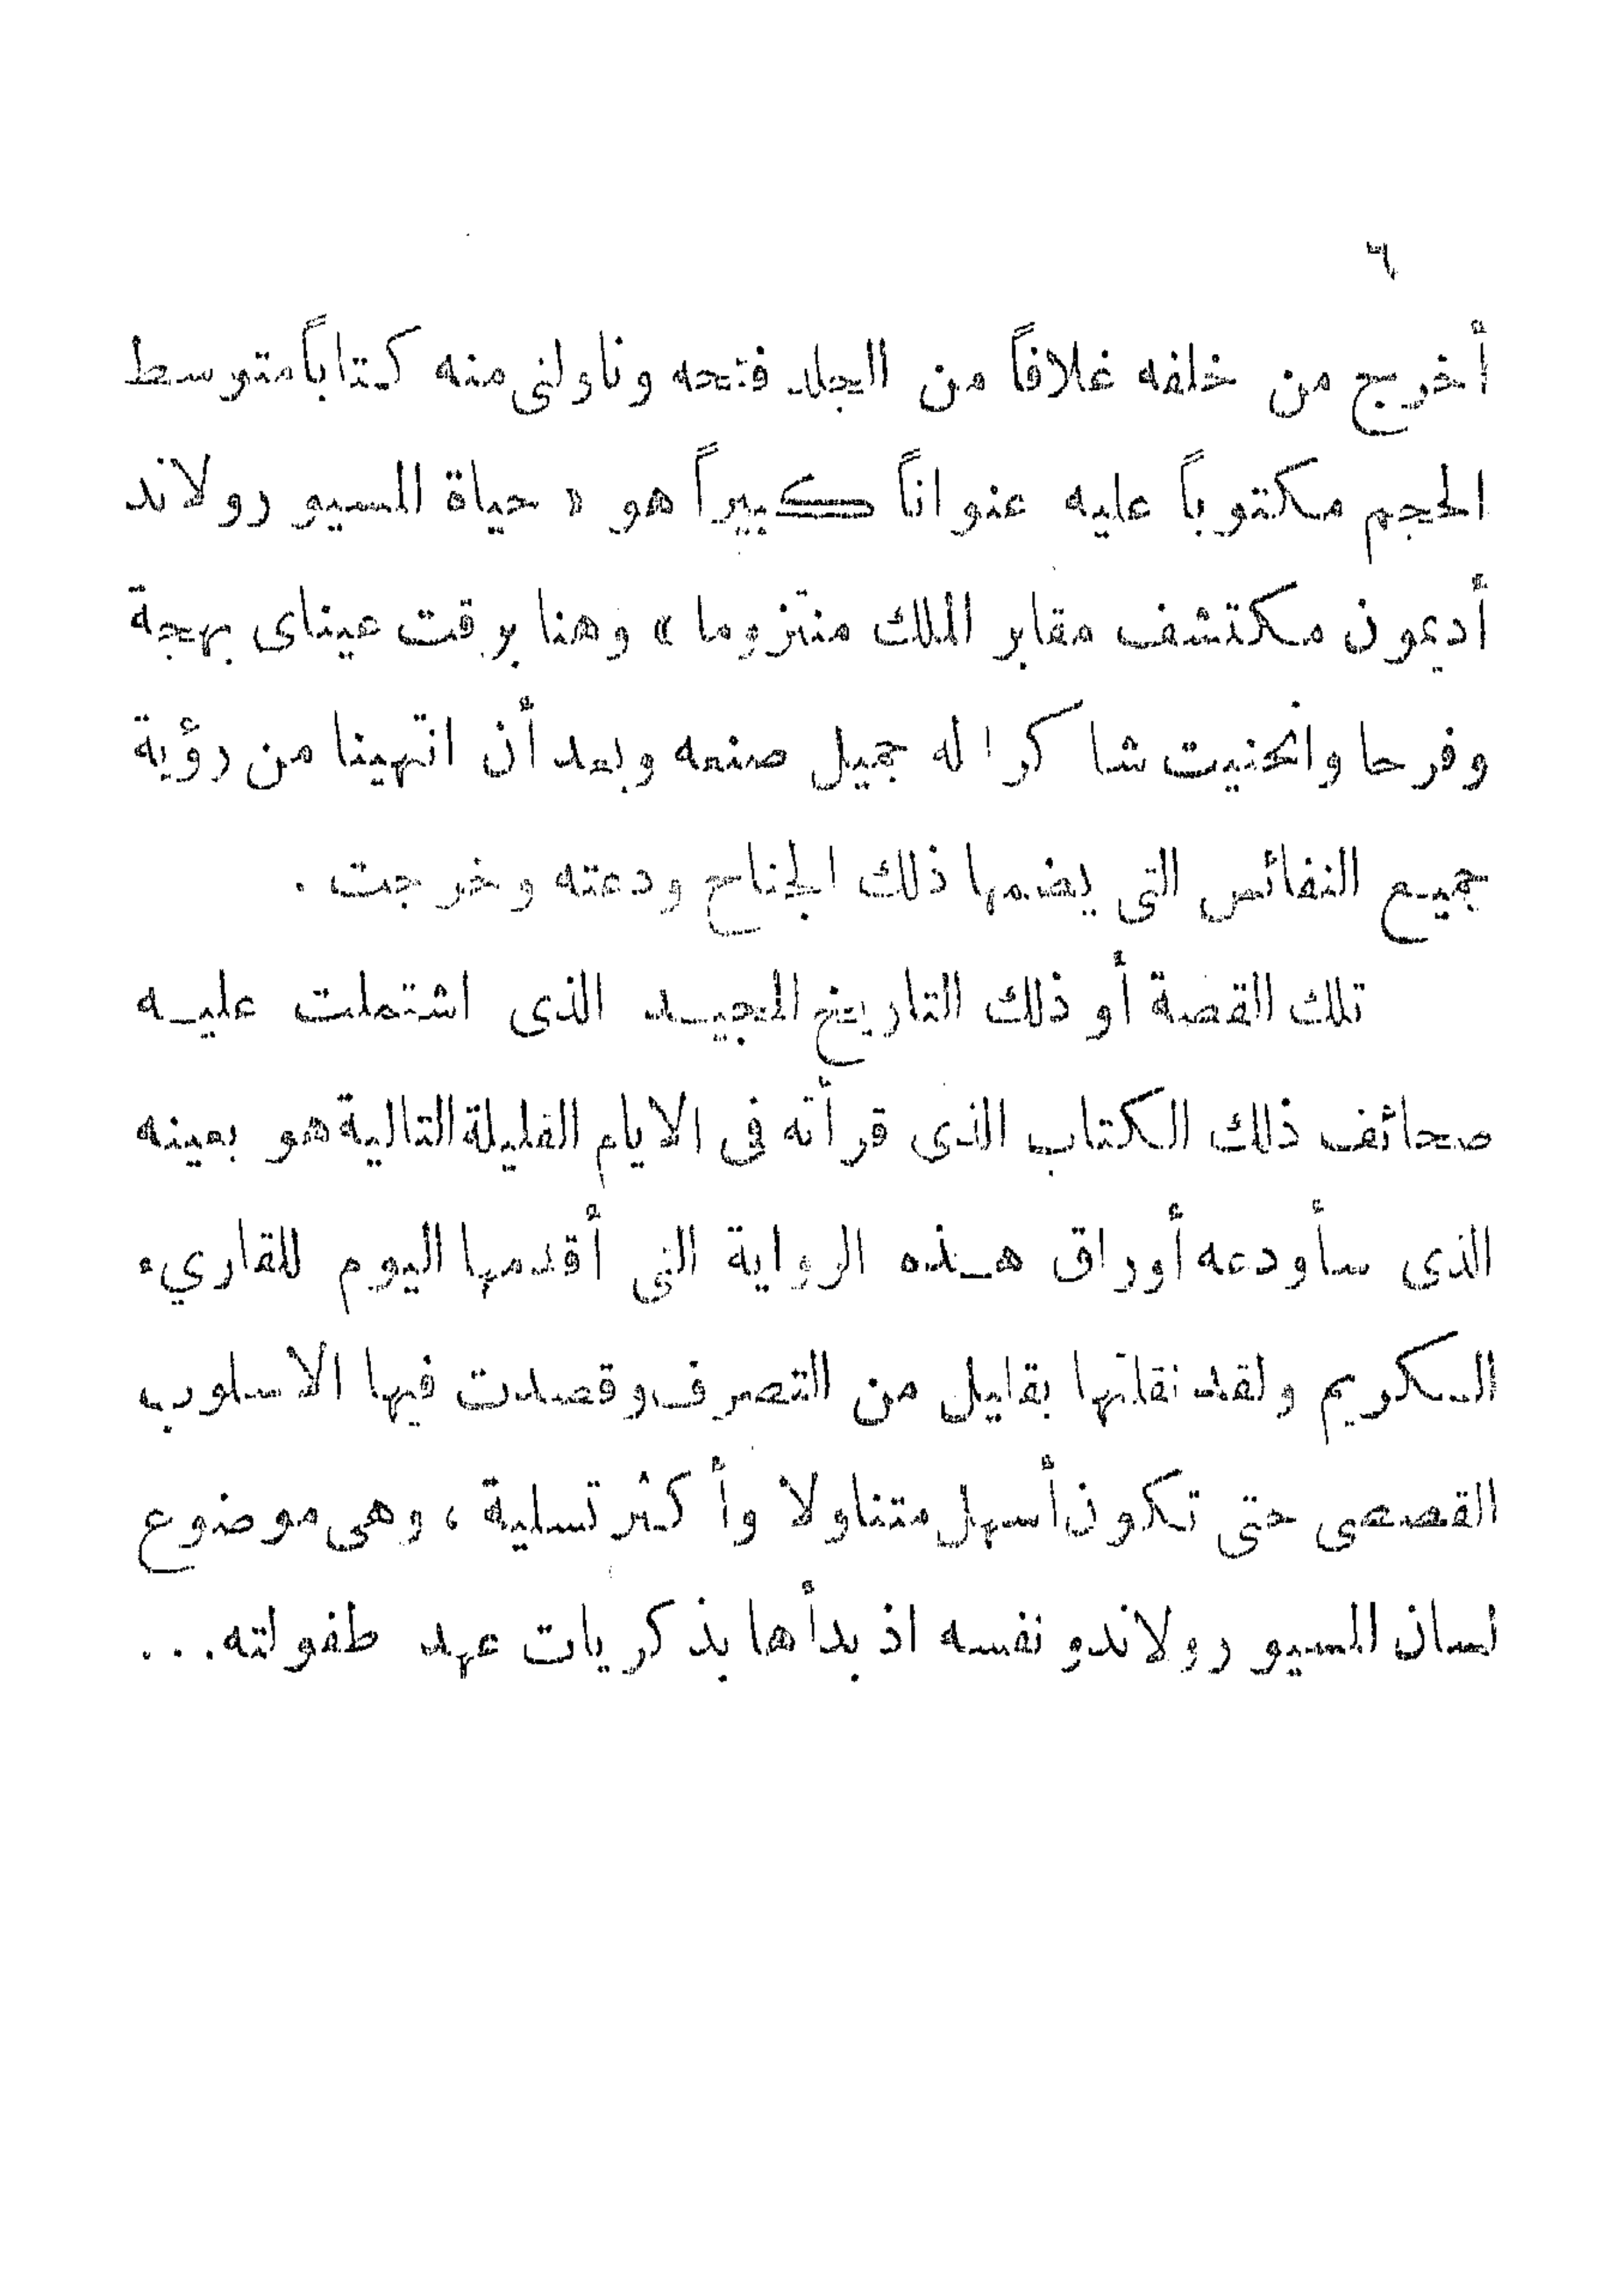 ٦
أخرج من خلفه غلافاً من الجلد فتحه وناولنى منه كتاباً متوسط
الحجم مكتوباً عليه عنواناً كبيراً هو « حياة المسيو رولاند
أديمون مكتشف مقابر الملك منتزوما » وهنا برقت عيناى بهجة
وفرحا وانحنيت شاكرا له جميل صنعه وبعد أن انتهينا من رؤية
جميع النفائس التى يضمها ذلك الجناح ودعته وخرجت .
تلك القصة أو ذلك التاريخ المجيد الذى اشتملت عليه
صحائف ذلك الكتاب الذى قرأته فى الايام القليلة التالية هو بعينه
الذى سأودعه أوراق هذه الرواية التى أقدمها اليوم للقاريء
الكريم ولقد نقلتها بقليل من التصرف وقصدت فيها الاسلوب
القصصى حتى تكون أسهل متناولا وأكثر تسلية ، وهى موضوع
لسان المسيو رولاندو نفسه اذ بدأها بذكريات عهد طفولته . . .